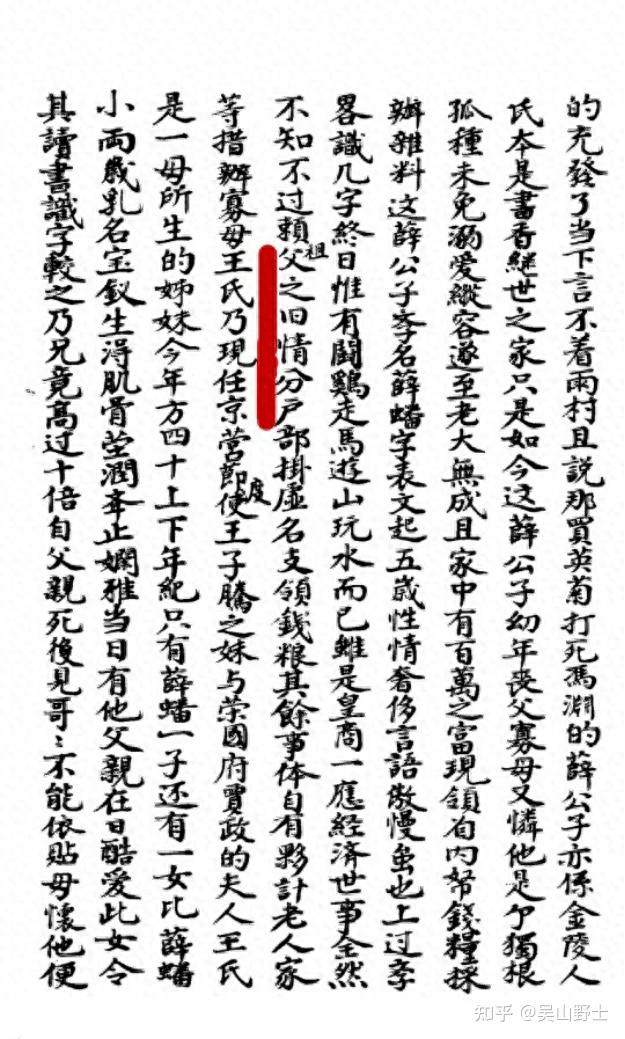 的充發了当下言不着雨村且説那買英菊打死馮淵的薛公子亦係金陵人
氏本是書香継世之家只是如今这薛公子幼年丧父寡母又憐他是个獨根
孤種未免溺愛縱容遂至老大無成且家中有百萬之富現領着内帑錢糧採
辦雜料这薛公子孝名薛蟠字表文起五歲性情奢侈言語傲慢虽也上过孝
畧識几字終日惟有闘鷄走馬遊山玩水而已雖是皇商一應経済世事全然
不知不过賴祖父之旧情分户部掛虚名支領錢粮其餘事体自有夥計老人家
等措辦寡母王氏乃現任京营節度使王子騰之妹与荣國府賈政的夫人王氏
是一母所生的姊妹今年方四十上下年紀只有薛蟠一子还有一女比薛蟠
小兩歲乳名宝釵生得肌骨莹潤举止嫻雅当日有他父親在日酷爱此女令
其讀書識字較之乃兄竟高过十倍自父親死後見哥〻不能依貼母懷他便
知乎 @吴山野士